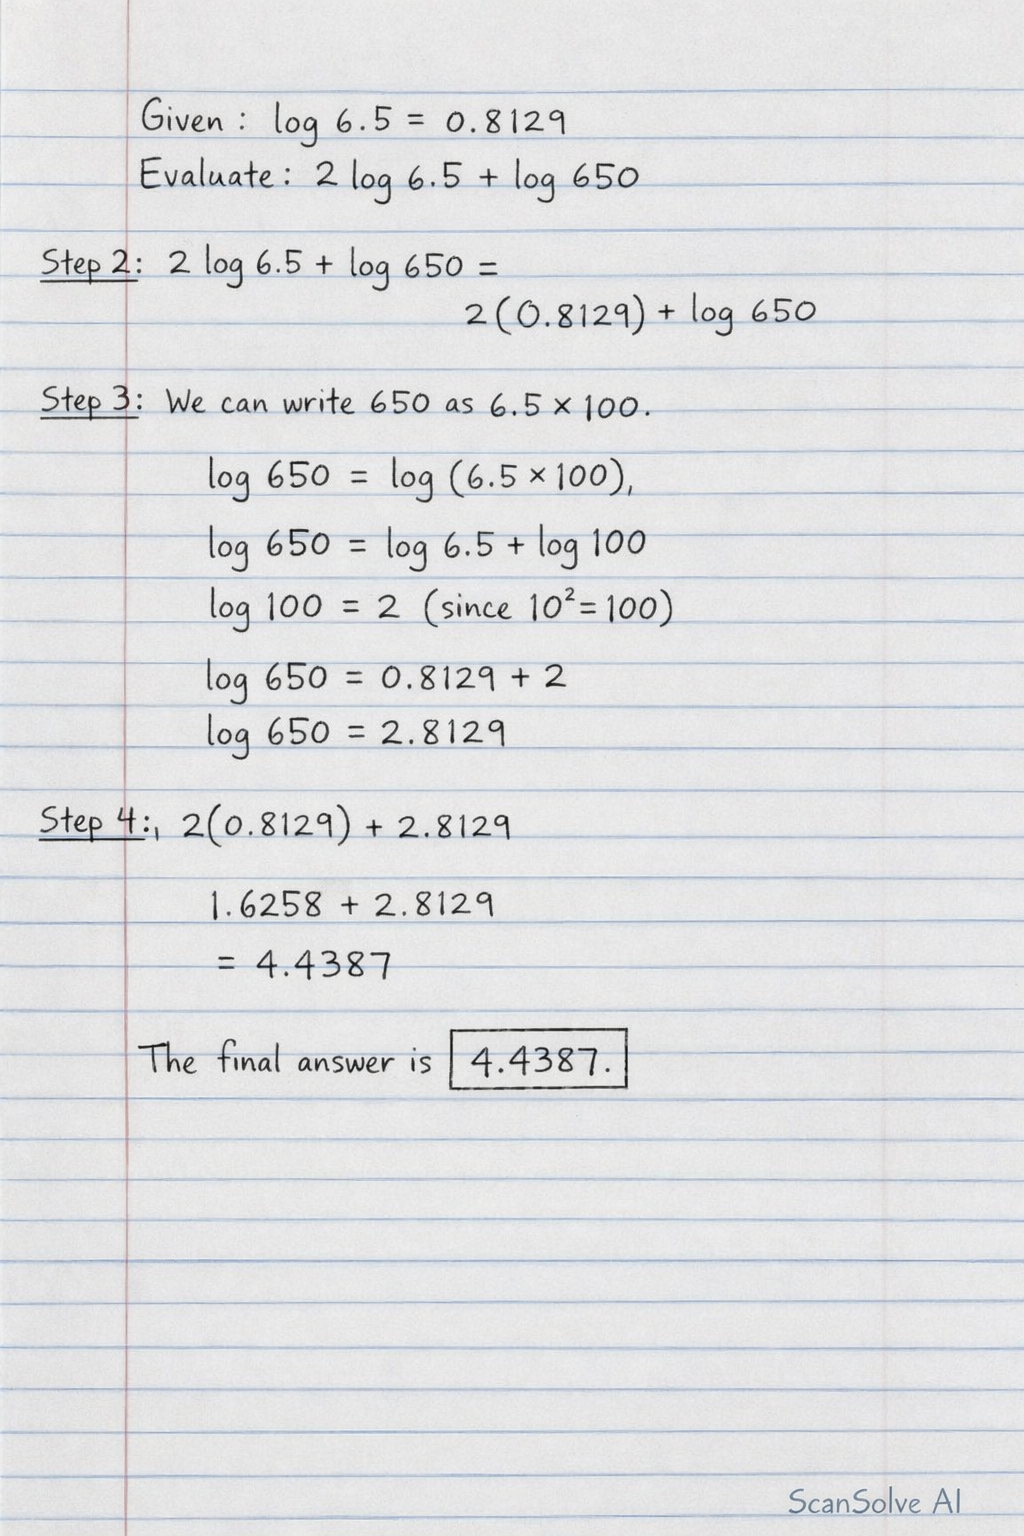 Given : log 6.5 = 0.8129
Evaluate : 2 log 6.5 + log 650
Step 2: 2 log 6.5 + log 650 =
2(0.8129) + log 650
Step 3: We can write 650 as 6.5 × 100.
log 650 = log (6.5 × 100),
log 650 = log 6.5 + log 100
log 100 = 2 (since 10² = 100)
log 650 = 0.8129 + 2
log 650 = 2.8129
Step 4:, 2(0.8129) + 2.8129
1.6258 + 2.8129
= 4.4387
The final answer is 4.4387.
ScanSolve AI